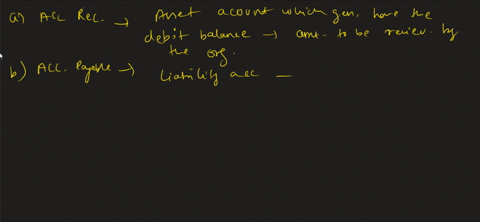 a) Acc Rec. → Asset account which gen. have the
debit balance → amt. to be receiv. by
the org.
b) Acc. Payable → Liability acc —